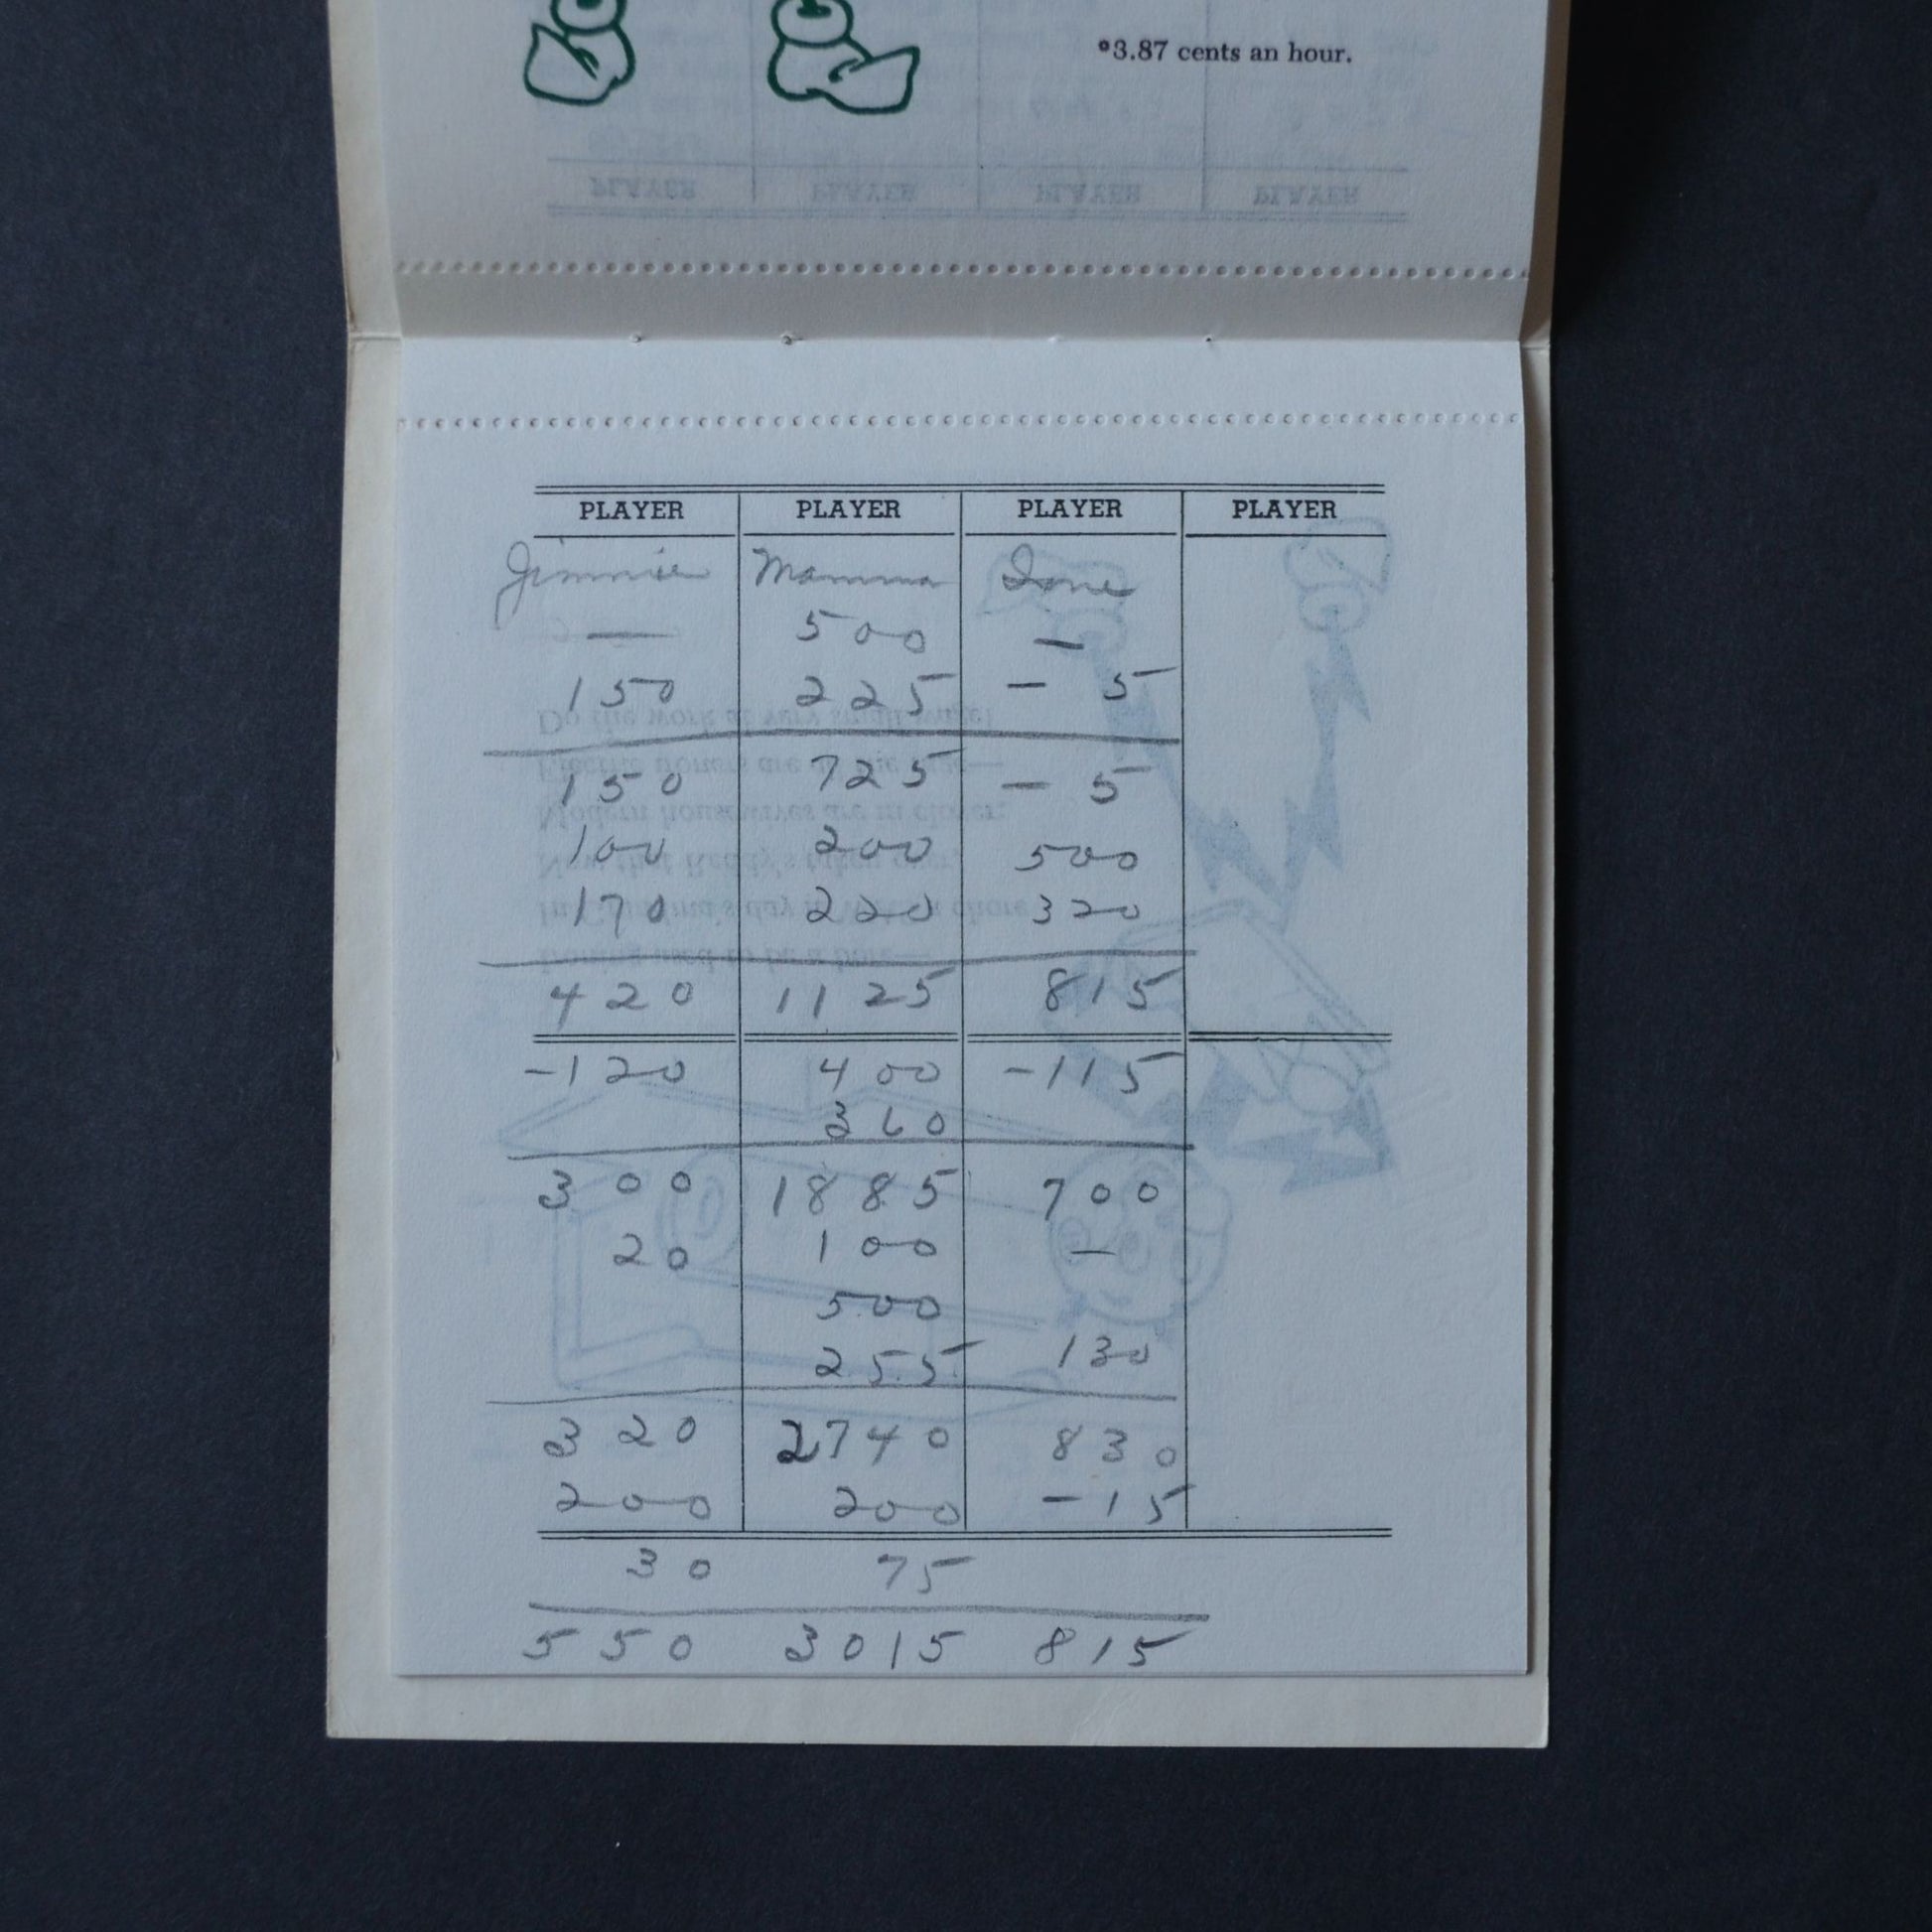 *3.87 cents an hour.
PLAYER PLAYER PLAYER PLAYER
PLAYER PLAYER PLAYER PLAYER
Jimmie Mamma Ione
— 500 —
150 225 - 5
150 725 - 5
100 200 500
170 220 320
420 1125 815
-120 400 -115
360
300 1885 700
20 100 —
500
255 130
320 2740 830
200 200 -15
30 75
550 3015 815